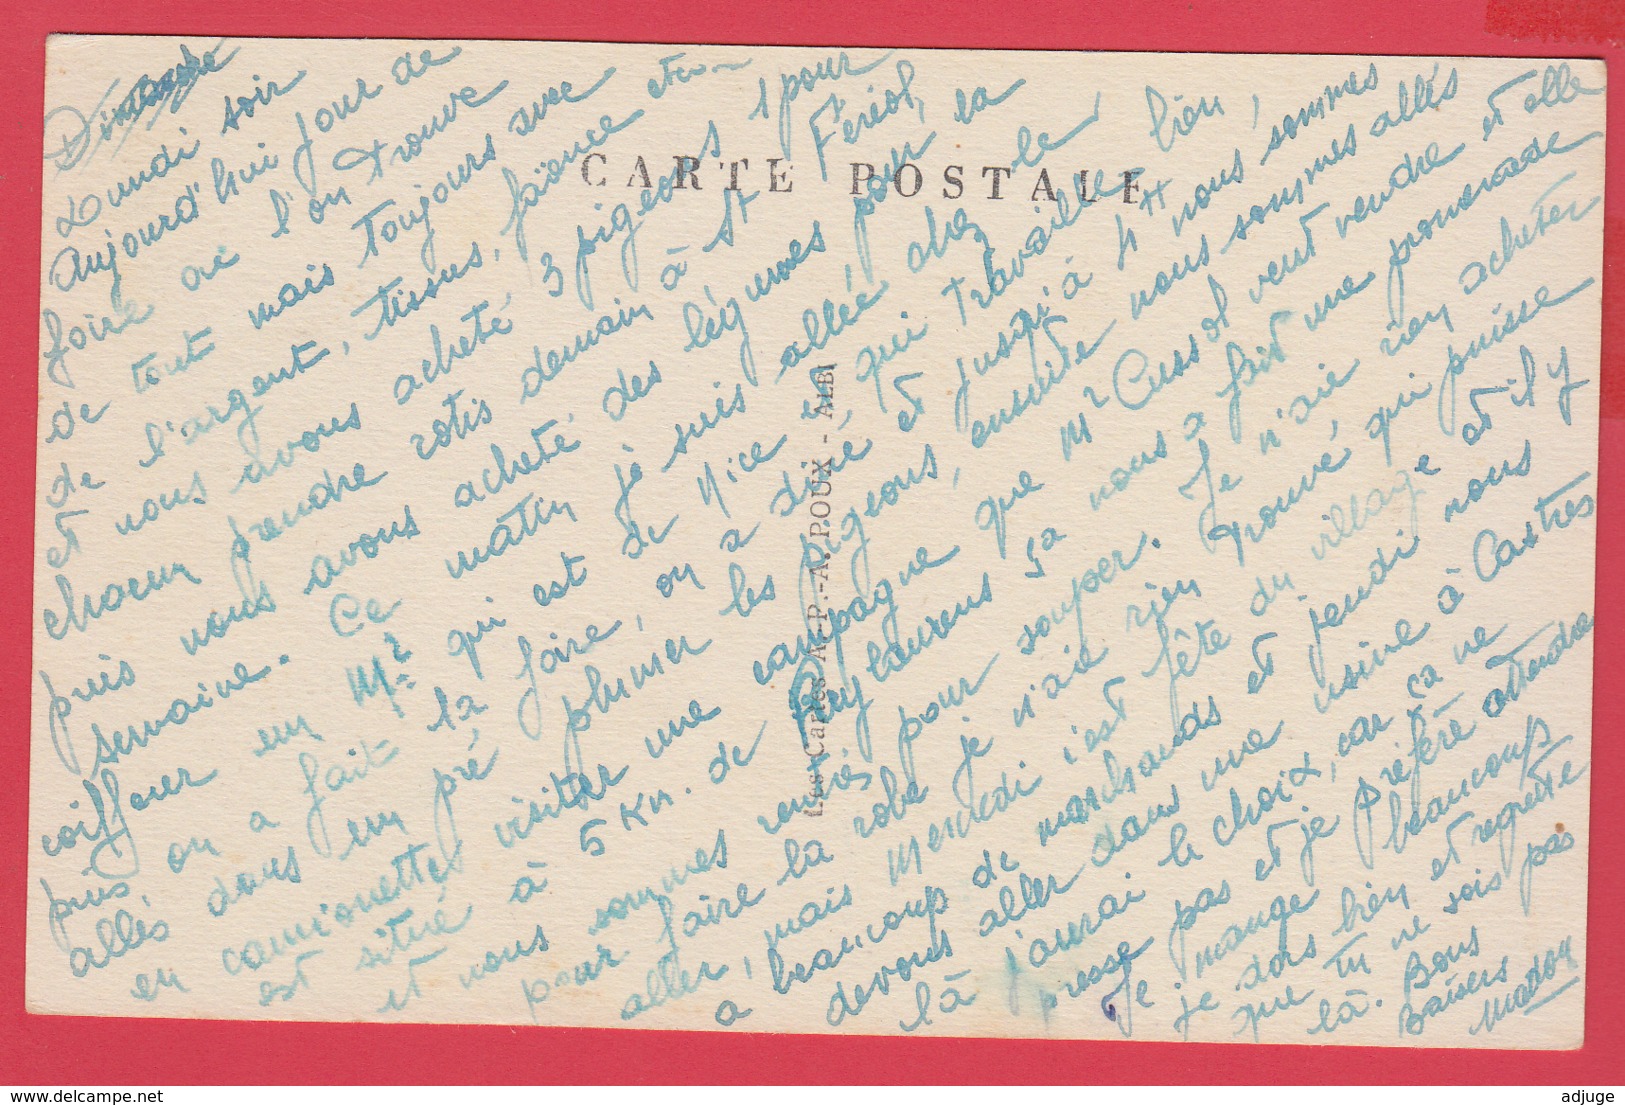 Dimanche
Lundi soir
Aujourd'hui jour de
foire où l'on trouve
de tout mais toujours avec
de l'argent, tissus, faïence etc...
et nous avons acheté 3 pigeons 1 pour
chacun prendre rotis demain à St Féréol,
puis nous avons acheté des légumes pour la
semaine. Ce matin je suis allée chez le
coiffeur en Mr qui est de Nice et qui travaille bien,
puis on a fait la foire, on a diné et jusqu'à 4H nous sommes
allés dans un pré plumer les pigeons, ensuite nous sommes allés
en camionette visiter une campagne que Mr Cussol veut vendre et elle
est situé à 5 Km. de Puylaurens ça nous a fait une promenade
et nous sommes rentrés pour souper. Je n'aie rien acheter
pour faire la robe je n'aie rien trouvé qui puisse
aller, mais Mercredi c'est fête du village et il y
a beaucoup de marchands et jeudi nous
devons aller dans une usine à Castres
là j'aurai le choix, car ça ne
presse pas et je préfère attendre
Je mange beaucoup
je dors bien et regrette
que tu ne sois pas
là. Bons
Baisers
Madou
CARTE POSTALE
Les Cartes A.P.-A. POUX - ALBI
delcampe.net
adjuge